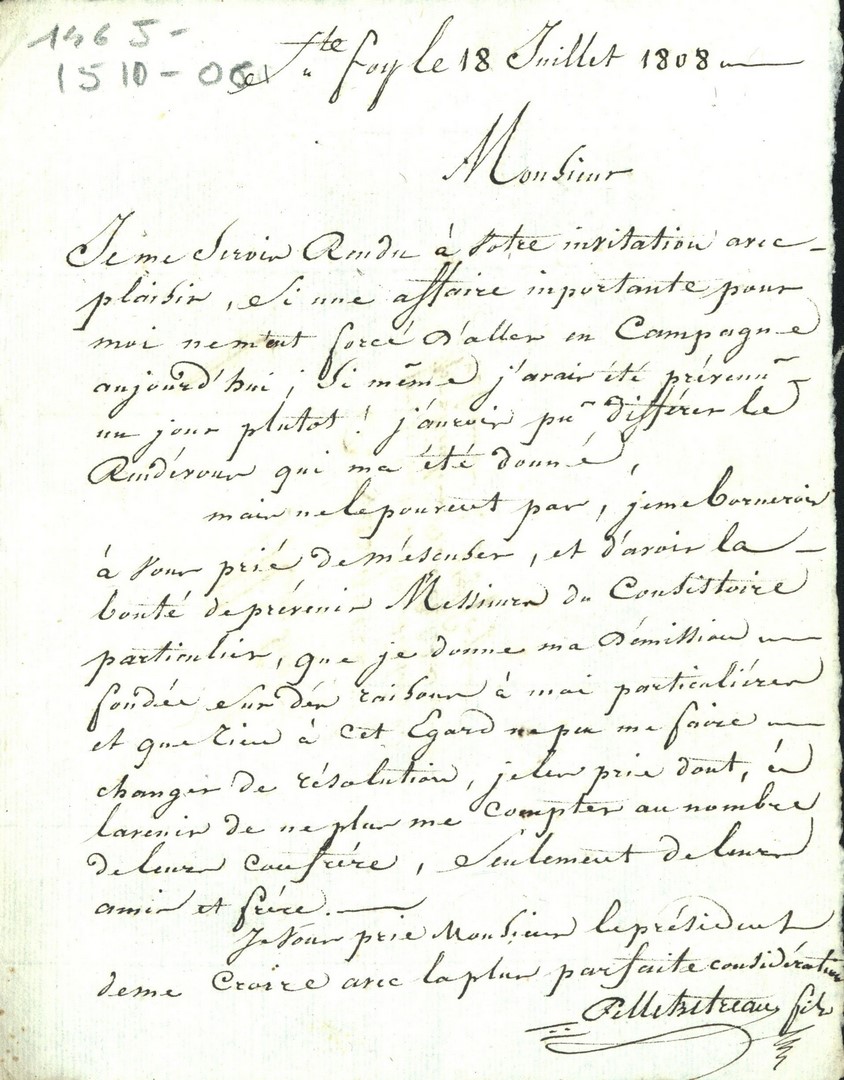 1465-
1510-06
Ste foy le 18 Juillet 1808
Monsieur
Je me Serois Rendu à Votre invitation avec
plaisir, Si une affaire inportante pour
moi ne m'eut forcé D'aller en Campagne
aujourd'hui; Si même j'avais été prévenu
un jour plutot! j'aurois pu différer le
Rendévous qui ma été donné,
mais ne le pouvent pas, je me bornerois
à Vous prié de m'éscuser, et d'avoir la
bonté de prévenir Messieurs du Consistoire
particulier, que je donne ma Démission
fondée Sur dés raisons à moi particuliéres
et que rien à cet Egard ne peu me faire
changer de résolution, je les prie dont, à
lavenir de ne plus me compter au nombre
de leurs confrére, Seulement de leurs
amis et frére.
Je Vous prie Monsieur le président
de me Croire avec la plus parfaite considération
Pelletretreau fils